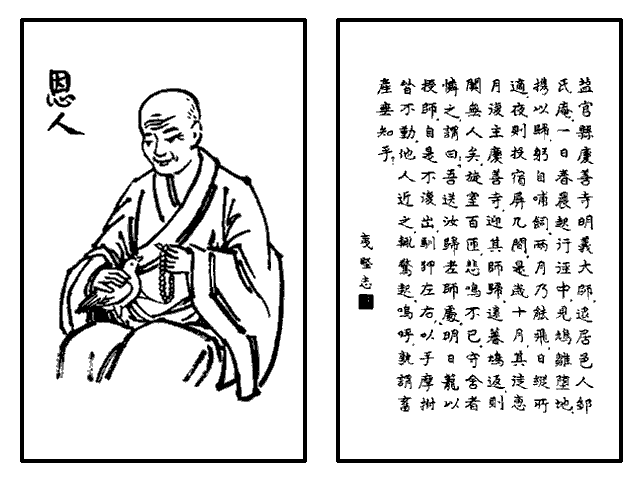 恩人
盐官縣慶善寺明義大師，退居邑人邹
氏庵。一日春晨起行逕中，見鳩雛墮地，
携以歸，躬自哺飼，兩月乃能飛。日縱所
適，夜則投宿屏几間。是歲十月，其徒惠
月復主慶善寺，迎其師歸。逮暮鳩返，則
闃無人矣。旋室百匝，悲鳴不已。守舍者
憐之，謂曰：吾送汝歸老師處。明日籠以
授師，自是不復出，馴狎左右，以手摩拊
皆不動，他人近之，輒驚起。嗚呼，孰謂畜
產無知乎。
夷堅志